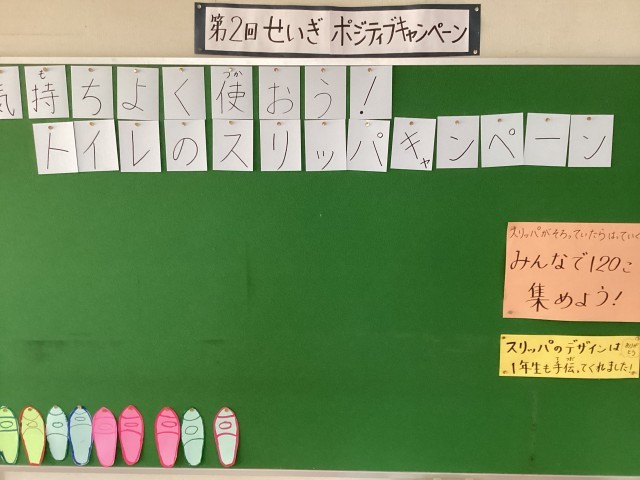 第2回 せいぎ ポジティブキャンペーン
気持ちよく使おう！
トイレのスリッパキャンペーン
スリッパがそろっていたらはっていく
みんなで120こ
集めよう！
スリッパのデザインは
1年生も手伝ってくれました！